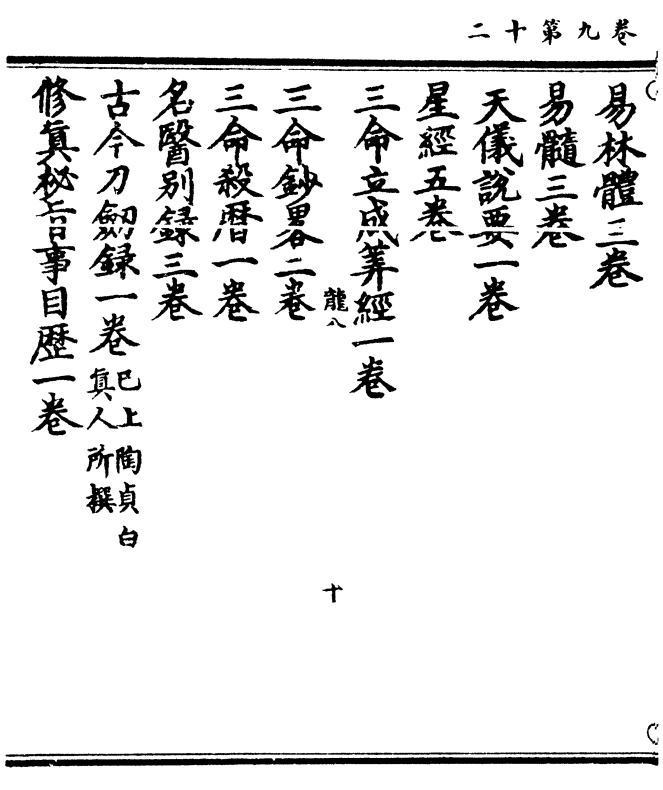 二十第九卷
易林體三卷
易髓三卷
天儀說要一卷
星經五卷
三命立成筭經一卷
龍八
十
三命鈔畧二卷
三命殺曆一卷
名醫別錄三卷
古今刀劒錄一卷 巳上陶貞白
眞人所撰
修眞秘旨事目歷一卷